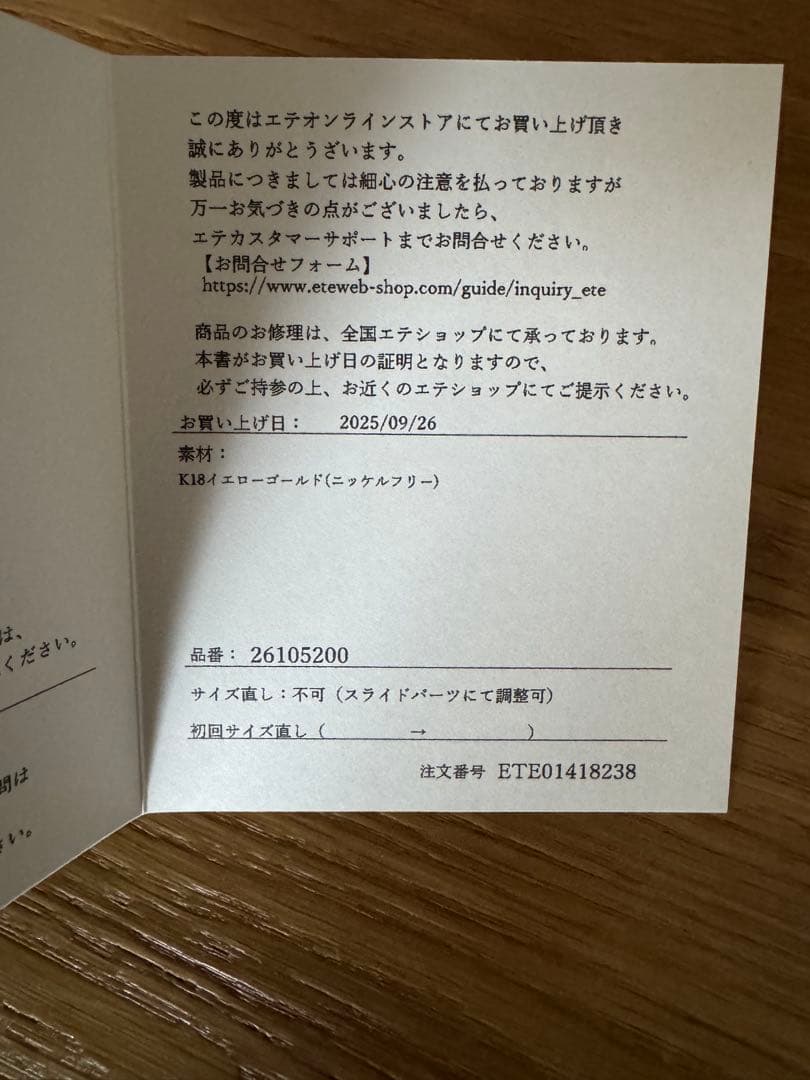 は、
ください。
間は
さい。
この度はエテオンラインストアにてお買い上げ頂き
誠にありがとうざいます。
製品につきましては細心の注意を払っておりますが
万一お気づきの点がございましたら、
エテカスタマーサポートまでお問合せください。
【お問合せフォーム】
https://www.eteweb-shop.com/guide/inquiry_ete
商品のお修理は、全国エテショップにて承っております。
本書がお買い上げ日の証明となりますので、
必ずご持参の上、お近くのエテショップにてご提示ください。
お買い上げ日： 2025/09/26
素材：
K18イエローゴールド(ニッケルフリー)
品番： 26105200
サイズ直し：不可（スライドパーツにて調整可）
初回サイズ直し（ → ）
注文番号 ETE01418238